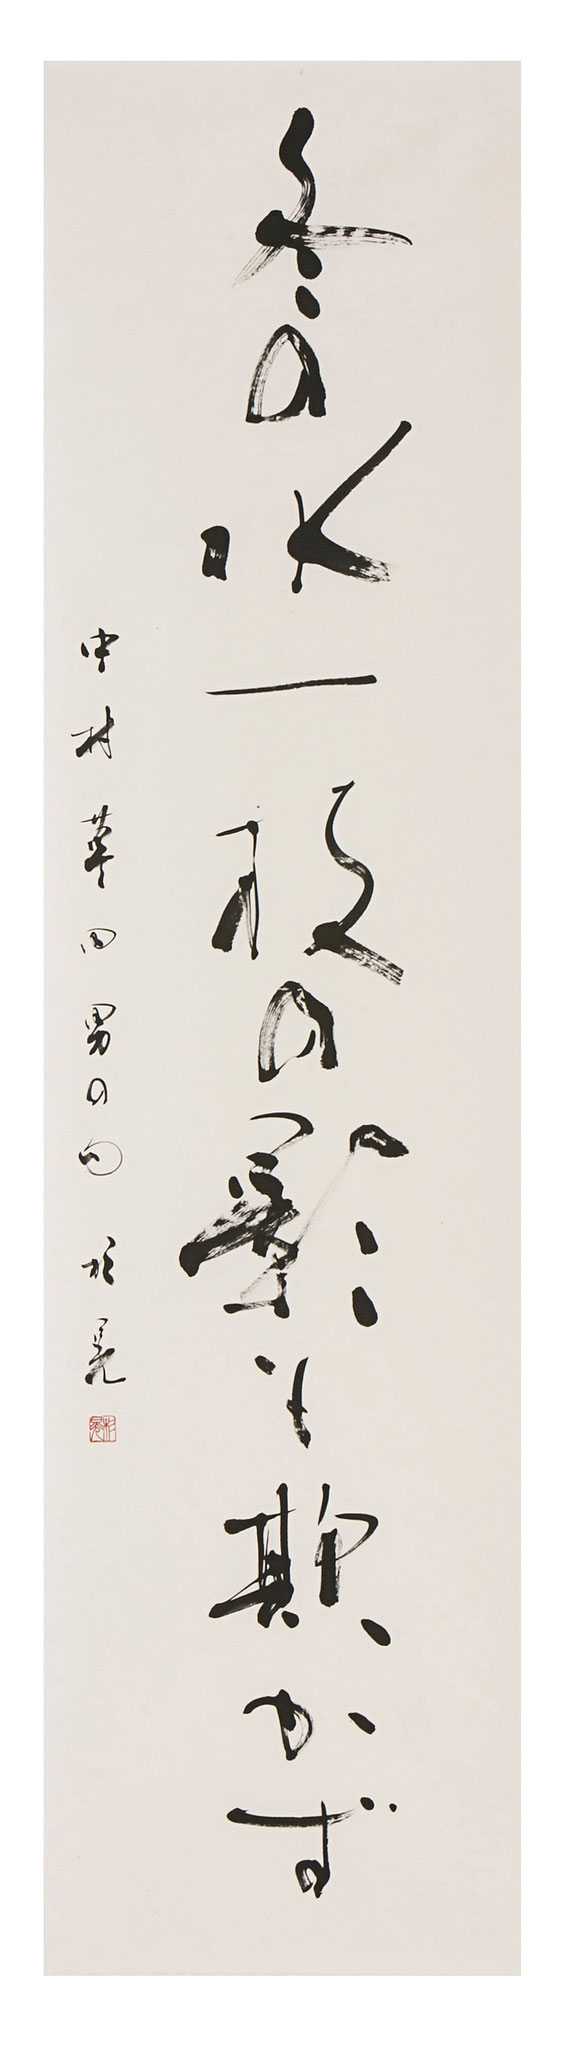 冬の水一枝の影も欺かず
中村草田男の句 杉晃